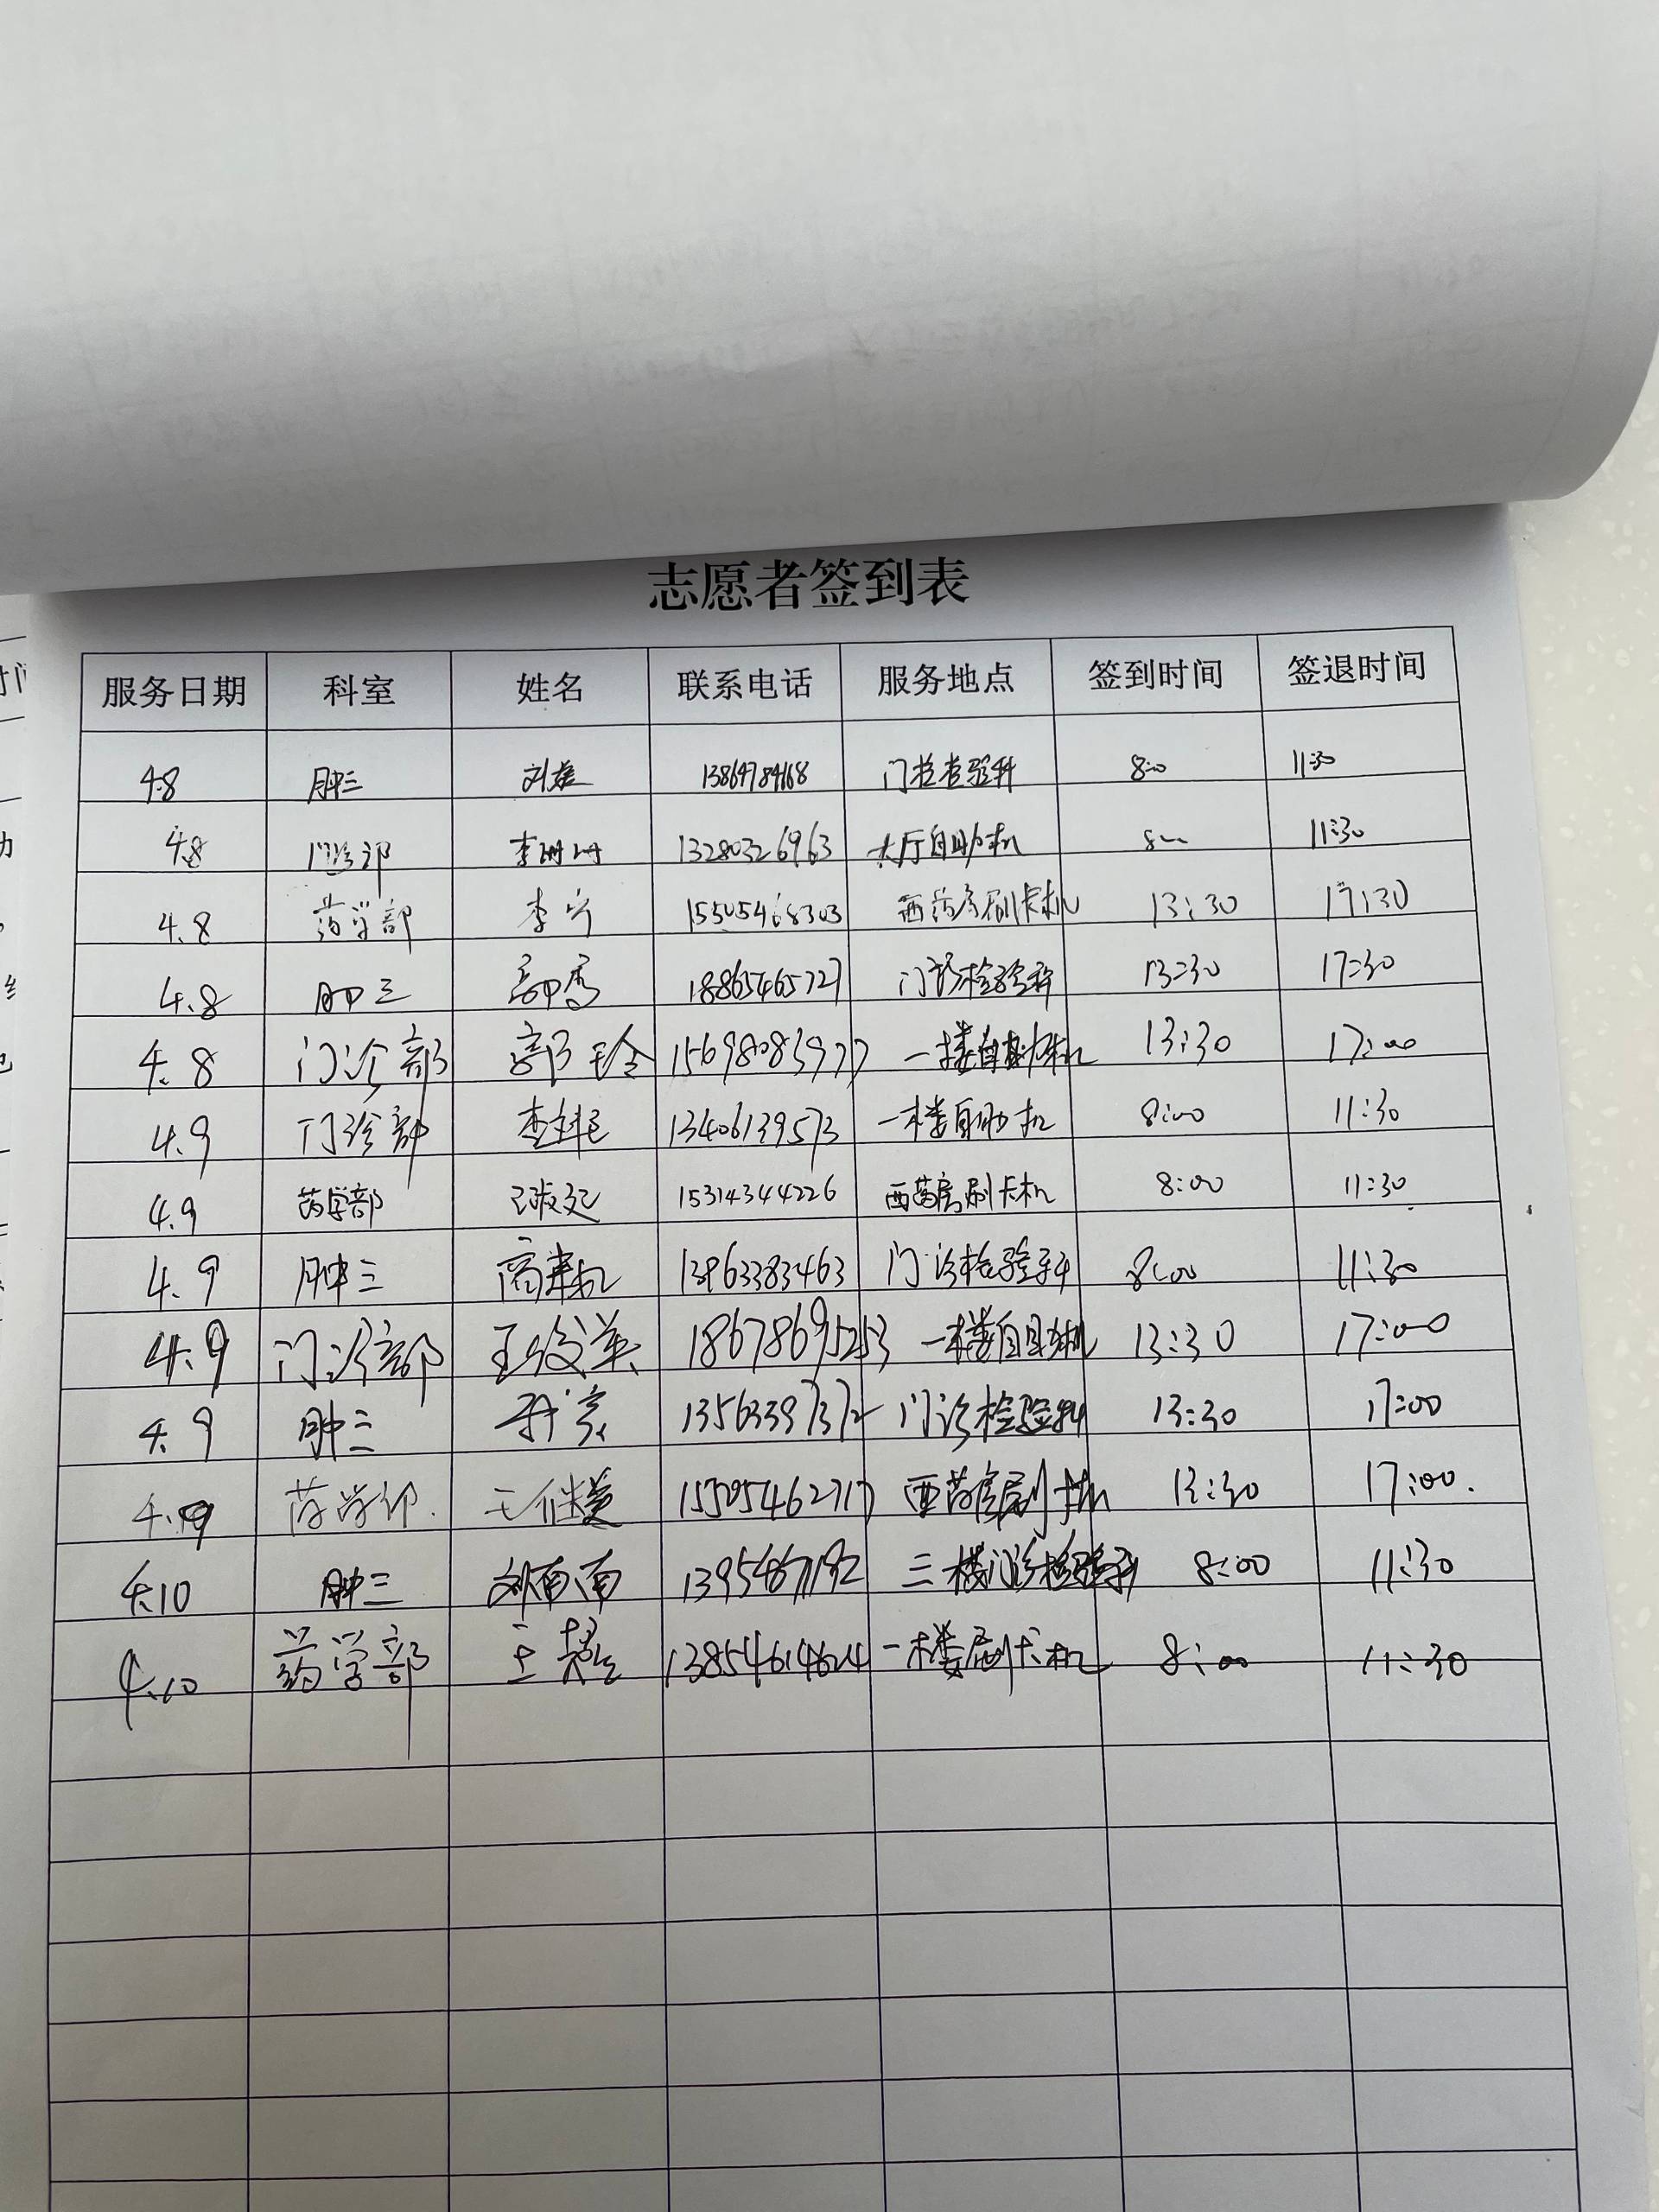 志愿者签到表
服务日期 科室 姓名 联系电话 服务地点 签到时间 签退时间
4.8 肿三 13864784168 门检查验科 8:00 11:30
4.8 门诊部 李珊珊 13280326963 大厅自助机 8:00 11:30
4.8 药学部 李宁 15505468303 西药房刷卡机 13:30 17:30
4.8 肿三 18865465727 门诊检验科 13:30 17:30
4.8 门诊部 郭玲 15698083977 一楼自助机 13:30 17:00
4.9 门诊部 13406139573 一楼自助机 8:00 11:30
4.9 药学部 15314344226 西药房刷卡机 8:00 11:30
4.9 肿三 13963383463 门诊检验科 8:00 11:30
4.9 门诊部 王俊英 18678695253 一楼自助机 13:30 17:00
4.9 肿三 13563397372 门诊检验科 13:30 17:00
4.9 药学部 王继美 15505462717 西药房刷卡机 13:30 17:00.
4.10 肿三 刘南南 三楼门诊检验科 8:00 11:30
4.10 药学部 13854614624 一楼刷卡机 8:00 11:30